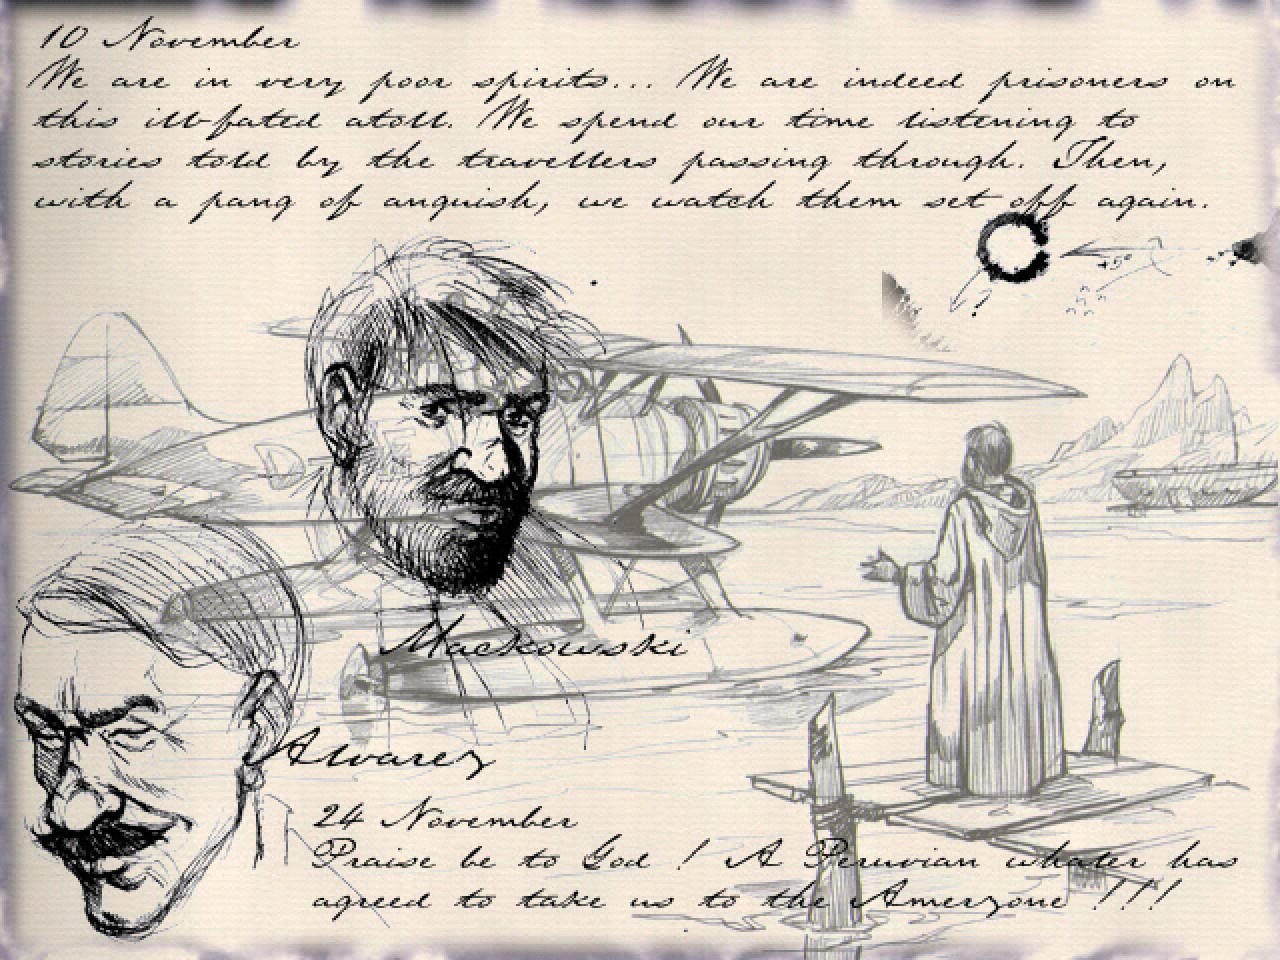 10 November
We are in very poor spirits... We are indeed prisoners on
this ill-fated atoll. We spend our time listening to
stories told by the travellers passing through. Then,
with a pang of anguish, we watch them set off again.
+50°
?
Mackowski
Alvarez
24 November
Praise be to God ! A Peruvian whaler has
agreed to take us to the Amerzone !!!